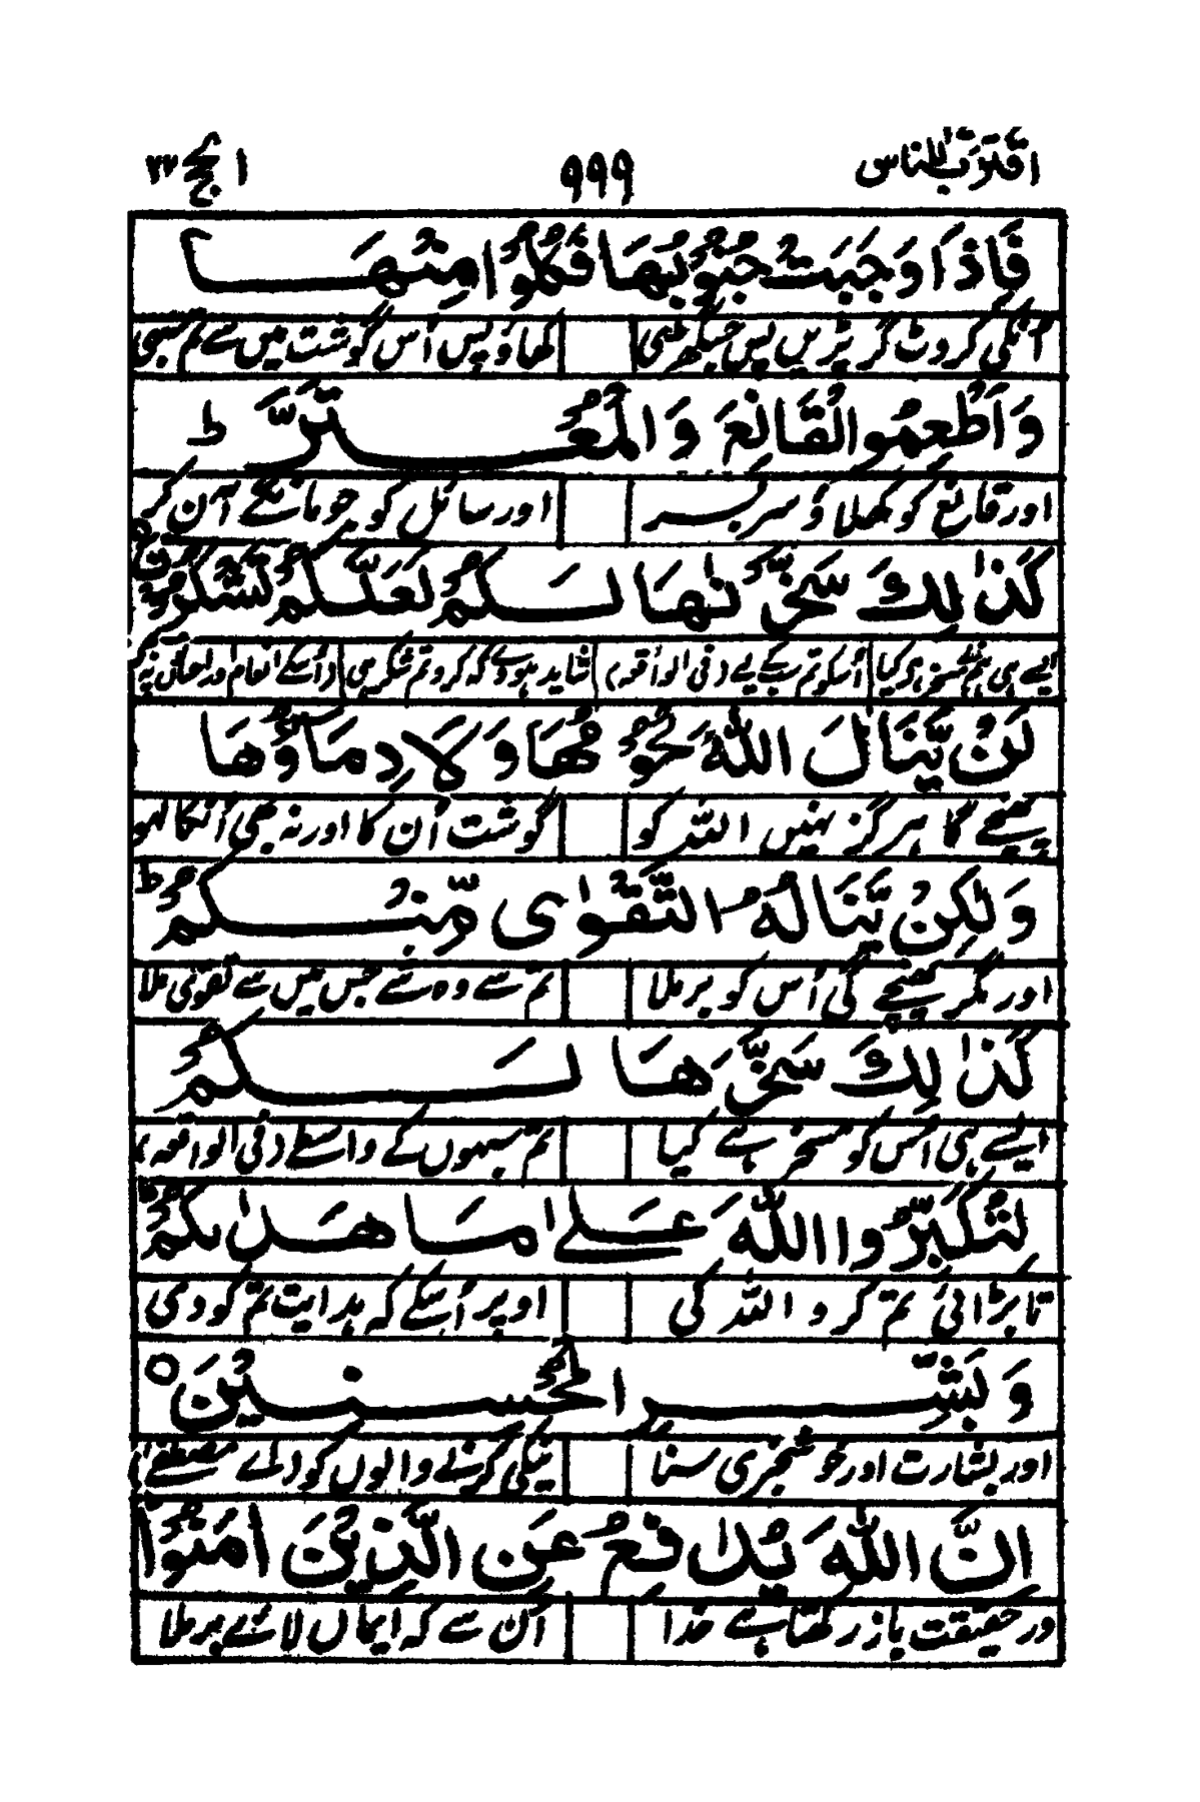 اقترب للناس ۹۹۹ الحج ۲۲
فَاِذَا وَجَبَتْ جُنُوْبُهَا فَكُلُوْا مِنْهَا
انکی کروٹ گر پڑیں پس جسگھڑی کھاؤ پس اُس گوشت میں سے تم سبھی
وَاَطْعِمُوا الْقَانِعَ وَالْمُعْتَرَّ ط
اور قانع کو کھلاؤ سربسر اور سائل کو جو مانگے آن کر
كَذٰلِكَ سَخَّرْنٰهَا لَكُمْ لَعَلَّكُمْ تَشْكُرُوْنَ
ایسے ہی ہم نے مسخر ہے کیا اُسکو تم سب کے لیے شاید ہووے کہ کرو تم شکر ہی
لَنْ يَّنَالَ اللّٰهَ لُحُوْمُهَا وَلَا دِمَاؤُهَا
پہنچے گا ہرگز نہیں اللہ کو گوشت اُن کا اور نہ ہی اُنکا لہو
وَلٰكِنْ يَّنَالُهُ التَّقْوٰى مِنْكُمْ ط
اور مگر پہنچے گی اُس کو برملا تم سے وہ شے جس میں سے تقویٰ ملا
كَذٰلِكَ سَخَّرَهَا لَكُمْ
ایسے ہی اُس کو مسخر ہے کیا تم سبہوں کے واسطے
لِتُكَبِّرُوا اللّٰهَ عَلٰى مَا هَدٰىكُمْ ط
تا بڑائی تم کرو اللہ کی اوپر اُسکے کہ ہدایت تم کو دی
وَبَشِّرِ الْمُحْسِنِيْنَ ○
اور بشارت اور خوشخبری سنا نیکی کرنے والوں کو اے مصطفےٰ
اِنَّ اللّٰهَ يُدٰفِعُ عَنِ الَّذِيْنَ اٰمَنُوْا
در حقیقت باز رکھتا ہے خدا اُن سے کہ ایماں لائے برملا